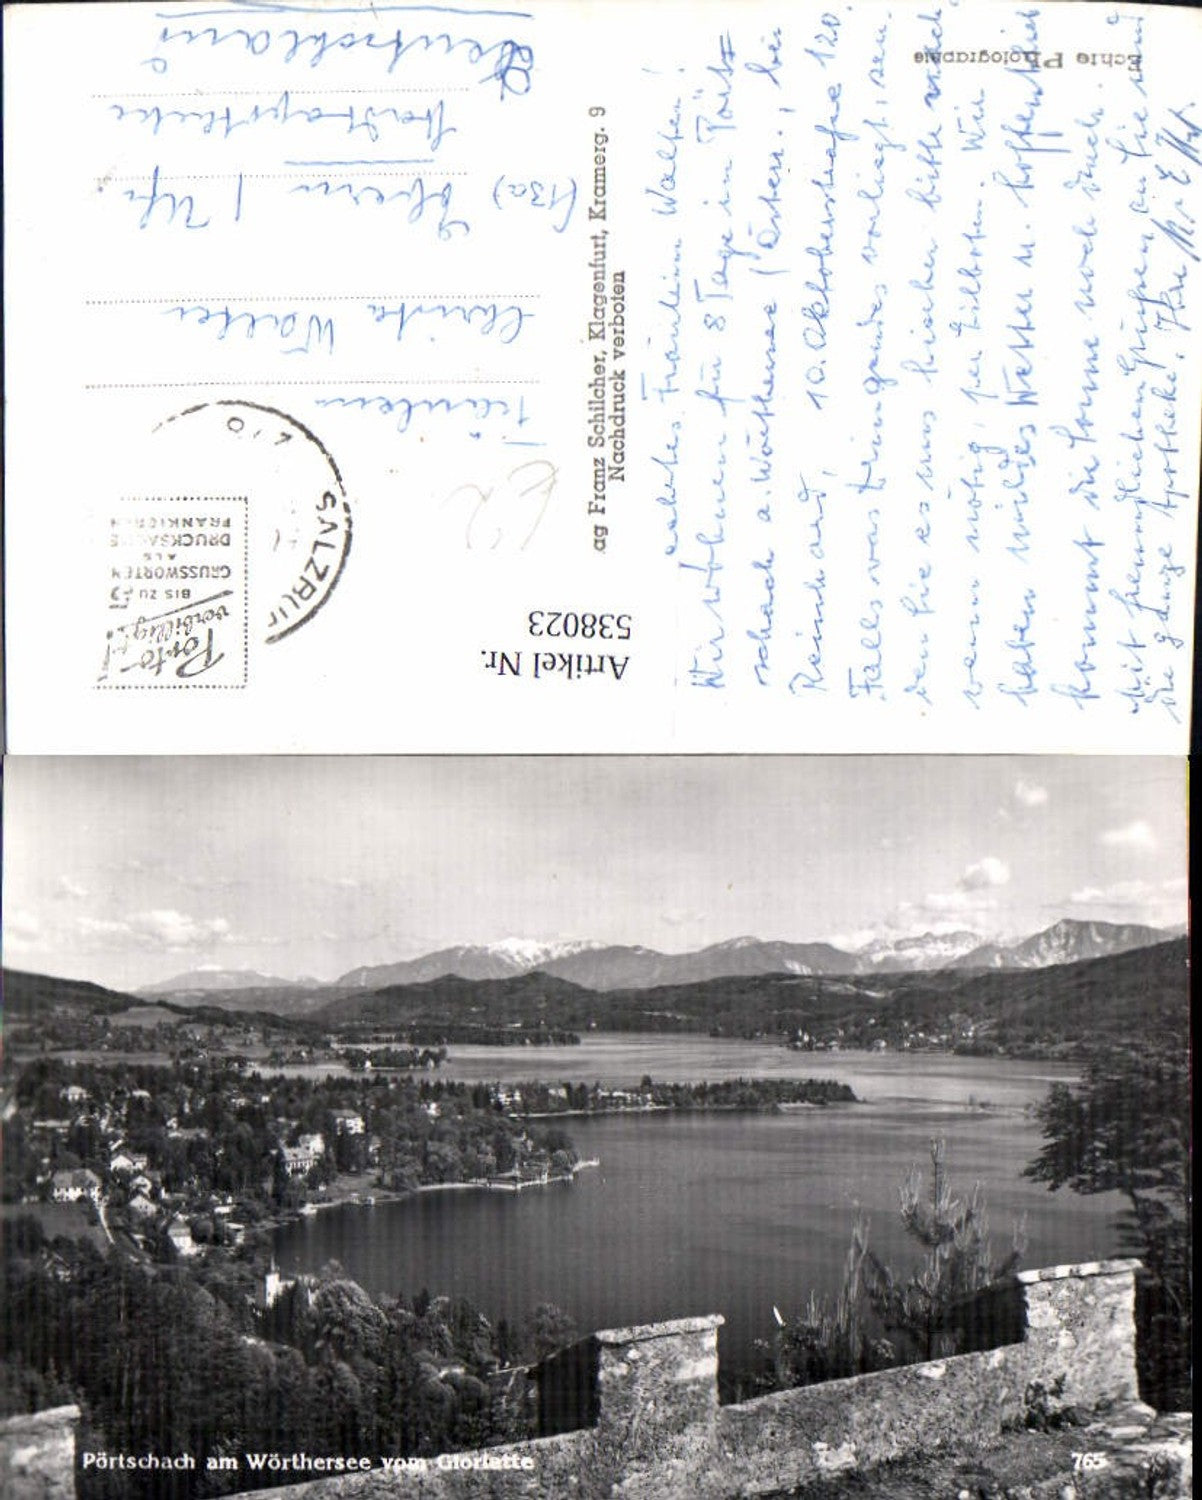 Echte Photographie
Wertes Fräulein Walter!
Wir wohnen für 8 Tage in Pört-
schach a. Wörthersee (Österr., bei
Reinhard, 10. Oktoberstraße 120.
Falls was dringendes vorliegt, sen-
den Sie es uns hierher bitte nach
wenn nötig, per Eilboten. Wir
haben mildes Wetter u. hoffentlich
kommt die Sonne noch durch.
Mit freundlichen Grüßen an Sie und
die ganze Apotheke. Ihre
ag Franz Schilcher, Klagenfurt, Kramerg. 9
Nachdruck verboten
Porto-
verbilligt!
BIS ZU 5
GRUSSWORTEN
ALS
DRUCKSACHE
FRANKIEREN
SALZBU
Fräulein
Christa Walter
(13a)
Stadtapotheke
Deutschland
Artikel Nr.
538023
Pörtschach am Wörthersee vom Gloriette
765